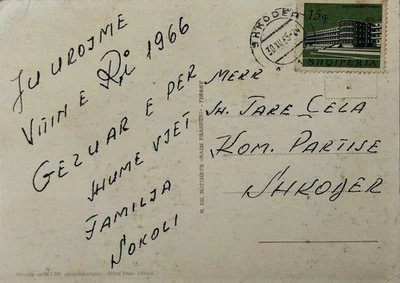 Ju urojme
Vitin e Ri 1966
Gezuar e per
shume vjet
Familja
Sokoli
SHKODER
30.XII.65
15q
SHQIPERIA
Merr
Sh. Tare Çela
Kom. Partise
Shkoder
N. SH. BOTIMEVE «NAIM FRASHERI» - TIRANE